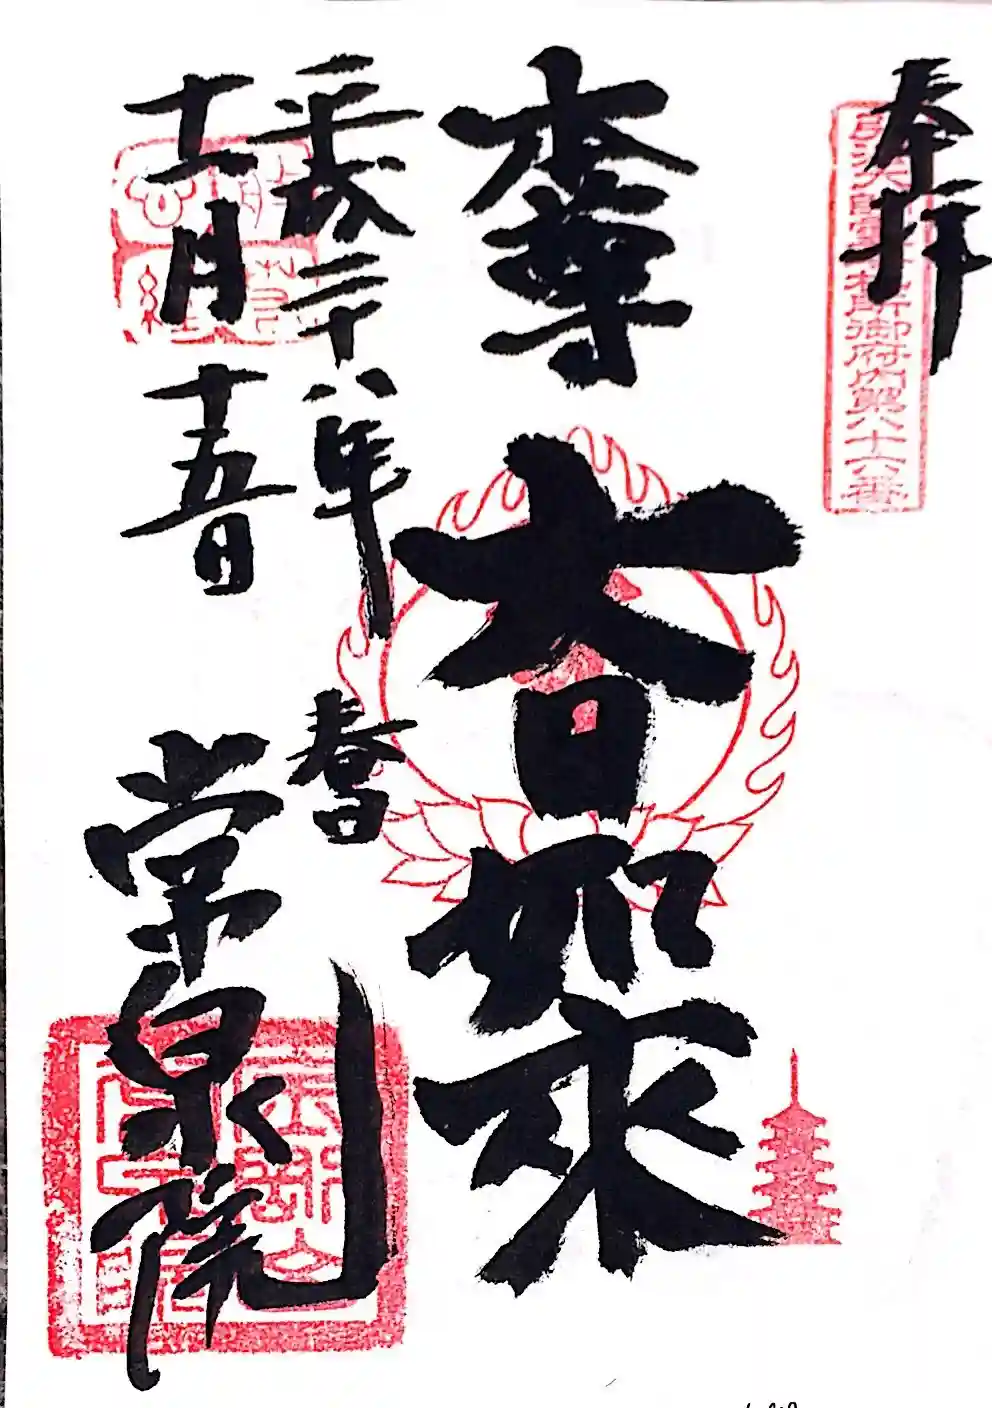 奉拝
札所御府内第八十六番
本尊 大日如来
平成二十八年
十一月十五日
春日
常泉院